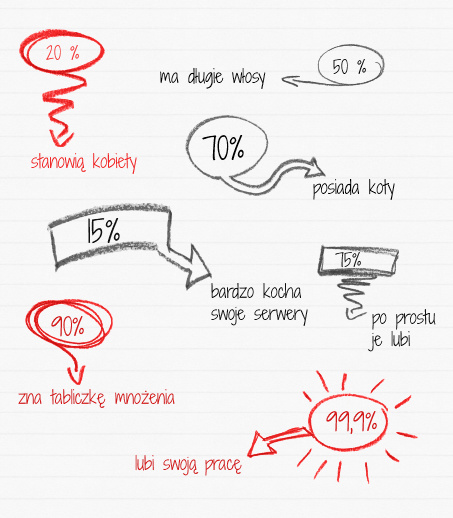 20 %
stanowią kobiety
50 %
ma długie włosy
70%
posiada koty
15%
bardzo kocha
swoje serwery
75%
po prostu
je lubi
90%
zna tabliczkę mnożenia
99,9%
lubi swoją pracę